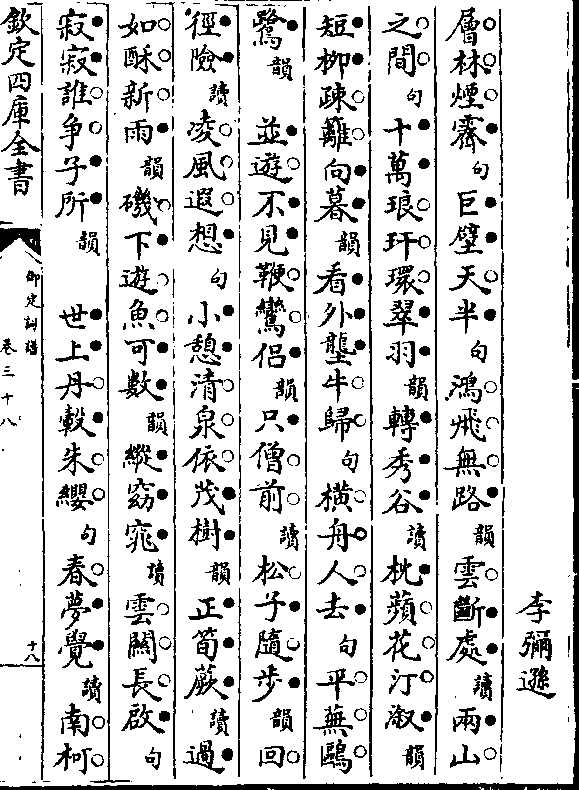 李彌遜
層林煙霽句巨壁天半句鴻飛無路韻雲斷處讀兩山
之間句十萬琅玕環翠羽韻轉秀谷讀枕蘋花汀溆韻
短柳疎籬向暮韻看外壟牛歸句橫舟人去句平蕪鷗
鷺韻 並遊不見鞭鸞侶韻只僧前讀松子隨步韻回
徑險讀凌風遐想句小憩清泉依茂樹韻正筍蕨讀過
如酥新雨韻磯下遊魚可數韻縱窈窕讀雲關長啟句
寂寂誰争子所韻 世上丹轂朱纓句春夢覺讀南柯
欽定四庫全書
御定詞譜
卷三十八
十八